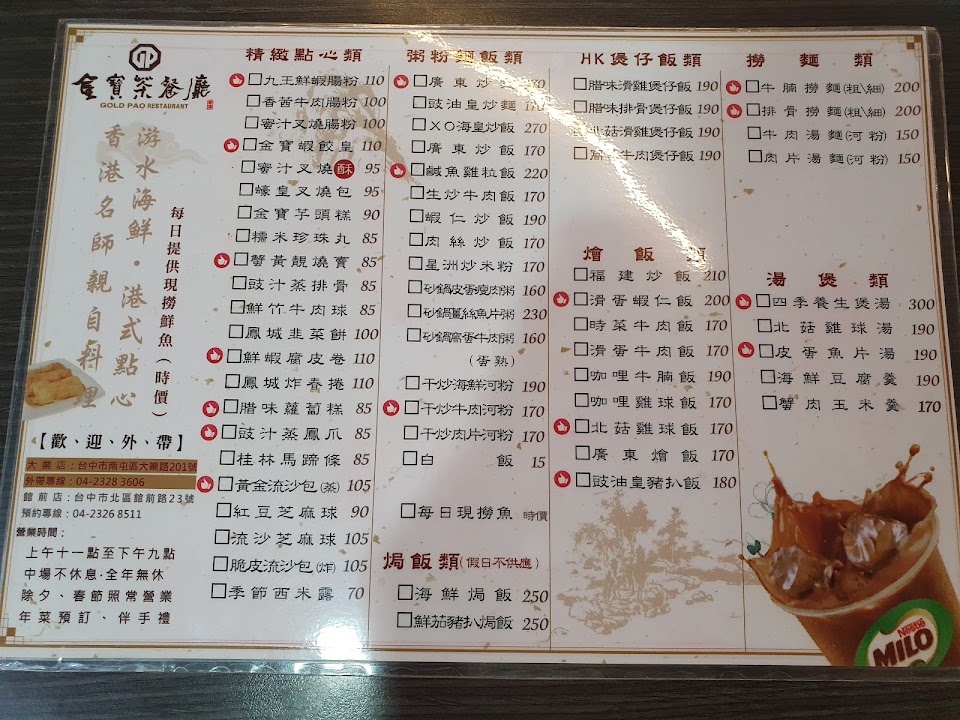 金寶茶餐廳
GOLD PAO RESTAURANT
游水海鮮・港式點心
香港名師親自料理
每日提供現撈鮮魚(時價)
【歡、迎、外、帶】
大業店:台中市南屯區大業路201號
外帶專線:04-2328 3606
館前店:台中市北區館前路23號
預約專線:04-2326 8511
營業時間:
上午十一點至下午九點
中場不休息·全年無休
除夕、春節照常營業
年菜預訂、伴手禮
精緻點心類
九王鮮蝦腸粉 110
香茜牛肉腸粉 100
蜜汁叉燒腸粉 100
金寶蝦餃皇 110
蜜汁叉燒酥 95
蠔皇叉燒包 95
金寶芋頭糕 90
糯米珍珠丸 85
蟹黃靚燒賣 85
豉汁蒸排骨 85
鮮竹牛肉球 85
鳳城韭菜餅 100
鮮蝦腐皮卷 110
鳳城炸春捲 110
腊味蘿蔔糕 85
豉汁蒸鳳爪 85
桂林馬蹄條 85
黃金流沙包(蒸) 105
紅豆芝麻球 90
流沙芝麻球 105
脆皮流沙包(炸) 105
季節西米露 70
粥粉麵飯類
廣東炒麵 170
豉油皇炒麵 170
XO海皇炒飯 270
廣東炒飯 170
鹹魚雞粒飯 220
生炒牛肉飯 170
蝦仁炒飯 190
肉絲炒飯 170
星洲炒米粉 170
砂鍋皮蛋瘦肉粥 160
砂鍋薑絲魚片粥 230
砂鍋窩蛋牛肉粥 160
(香熟)
干炒海鮮河粉 190
干炒牛肉河粉 170
干炒肉片河粉 170
白飯 15
每日現撈魚 時價
焗飯類(假日不供應)
海鮮焗飯 250
鮮茄豬扒焗飯 250
HK煲仔飯類
腊味滑雞煲仔飯 190
腊味排骨煲仔飯 190
北菇滑雞煲仔飯 190
窩蛋牛肉煲仔飯 190
燴飯類
福建炒飯 210
滑蛋蝦仁飯 200
時菜牛肉飯 170
滑蛋牛肉飯 170
咖哩牛腩飯 190
咖哩雞球飯 170
北菇雞球飯 170
廣東燴飯 170
豉油皇豬扒飯 180
撈麵類
牛腩撈麵(粗\細) 200
排骨撈麵(粗\細) 200
牛肉湯麵(河粉) 150
肉片湯麵(河粉) 150
湯煲類
四季養生煲湯 300
北菇雞球湯 190
皮蛋魚片湯 190
海鮮豆腐羹 190
蟹肉玉米羹 170
Nestlé
MILO